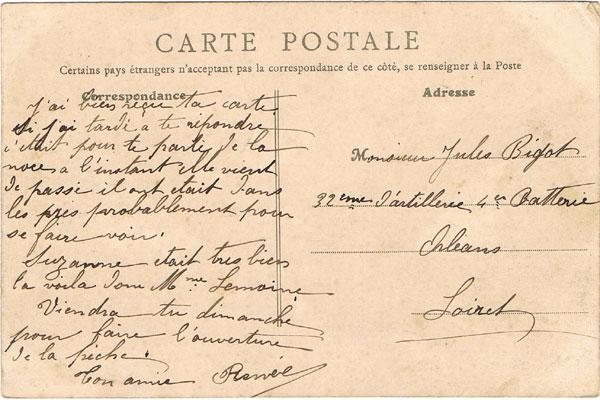 CARTE POSTALE
Certains pays étrangers n'acceptant pas la correspondance de ce côté, se renseigner à la Poste
Correspondance
J'ai bien reçue ta carte.
Si j'ai tardé a te répondre
c'était pour te parlé de la
noce a l'instant elle vient
de passé il ont était dans
les pres probablement pour
se faire voir.
Suzanne était tres bien
la voila donc Mme Lemoine
Viendra tu dimanche
pour faire l'ouverture
de la pèche.
Ton amie Renée
Adresse
Monsieur Jules Bigot
32eme d'artillerie 4e Batterie
Orleans
Loiret